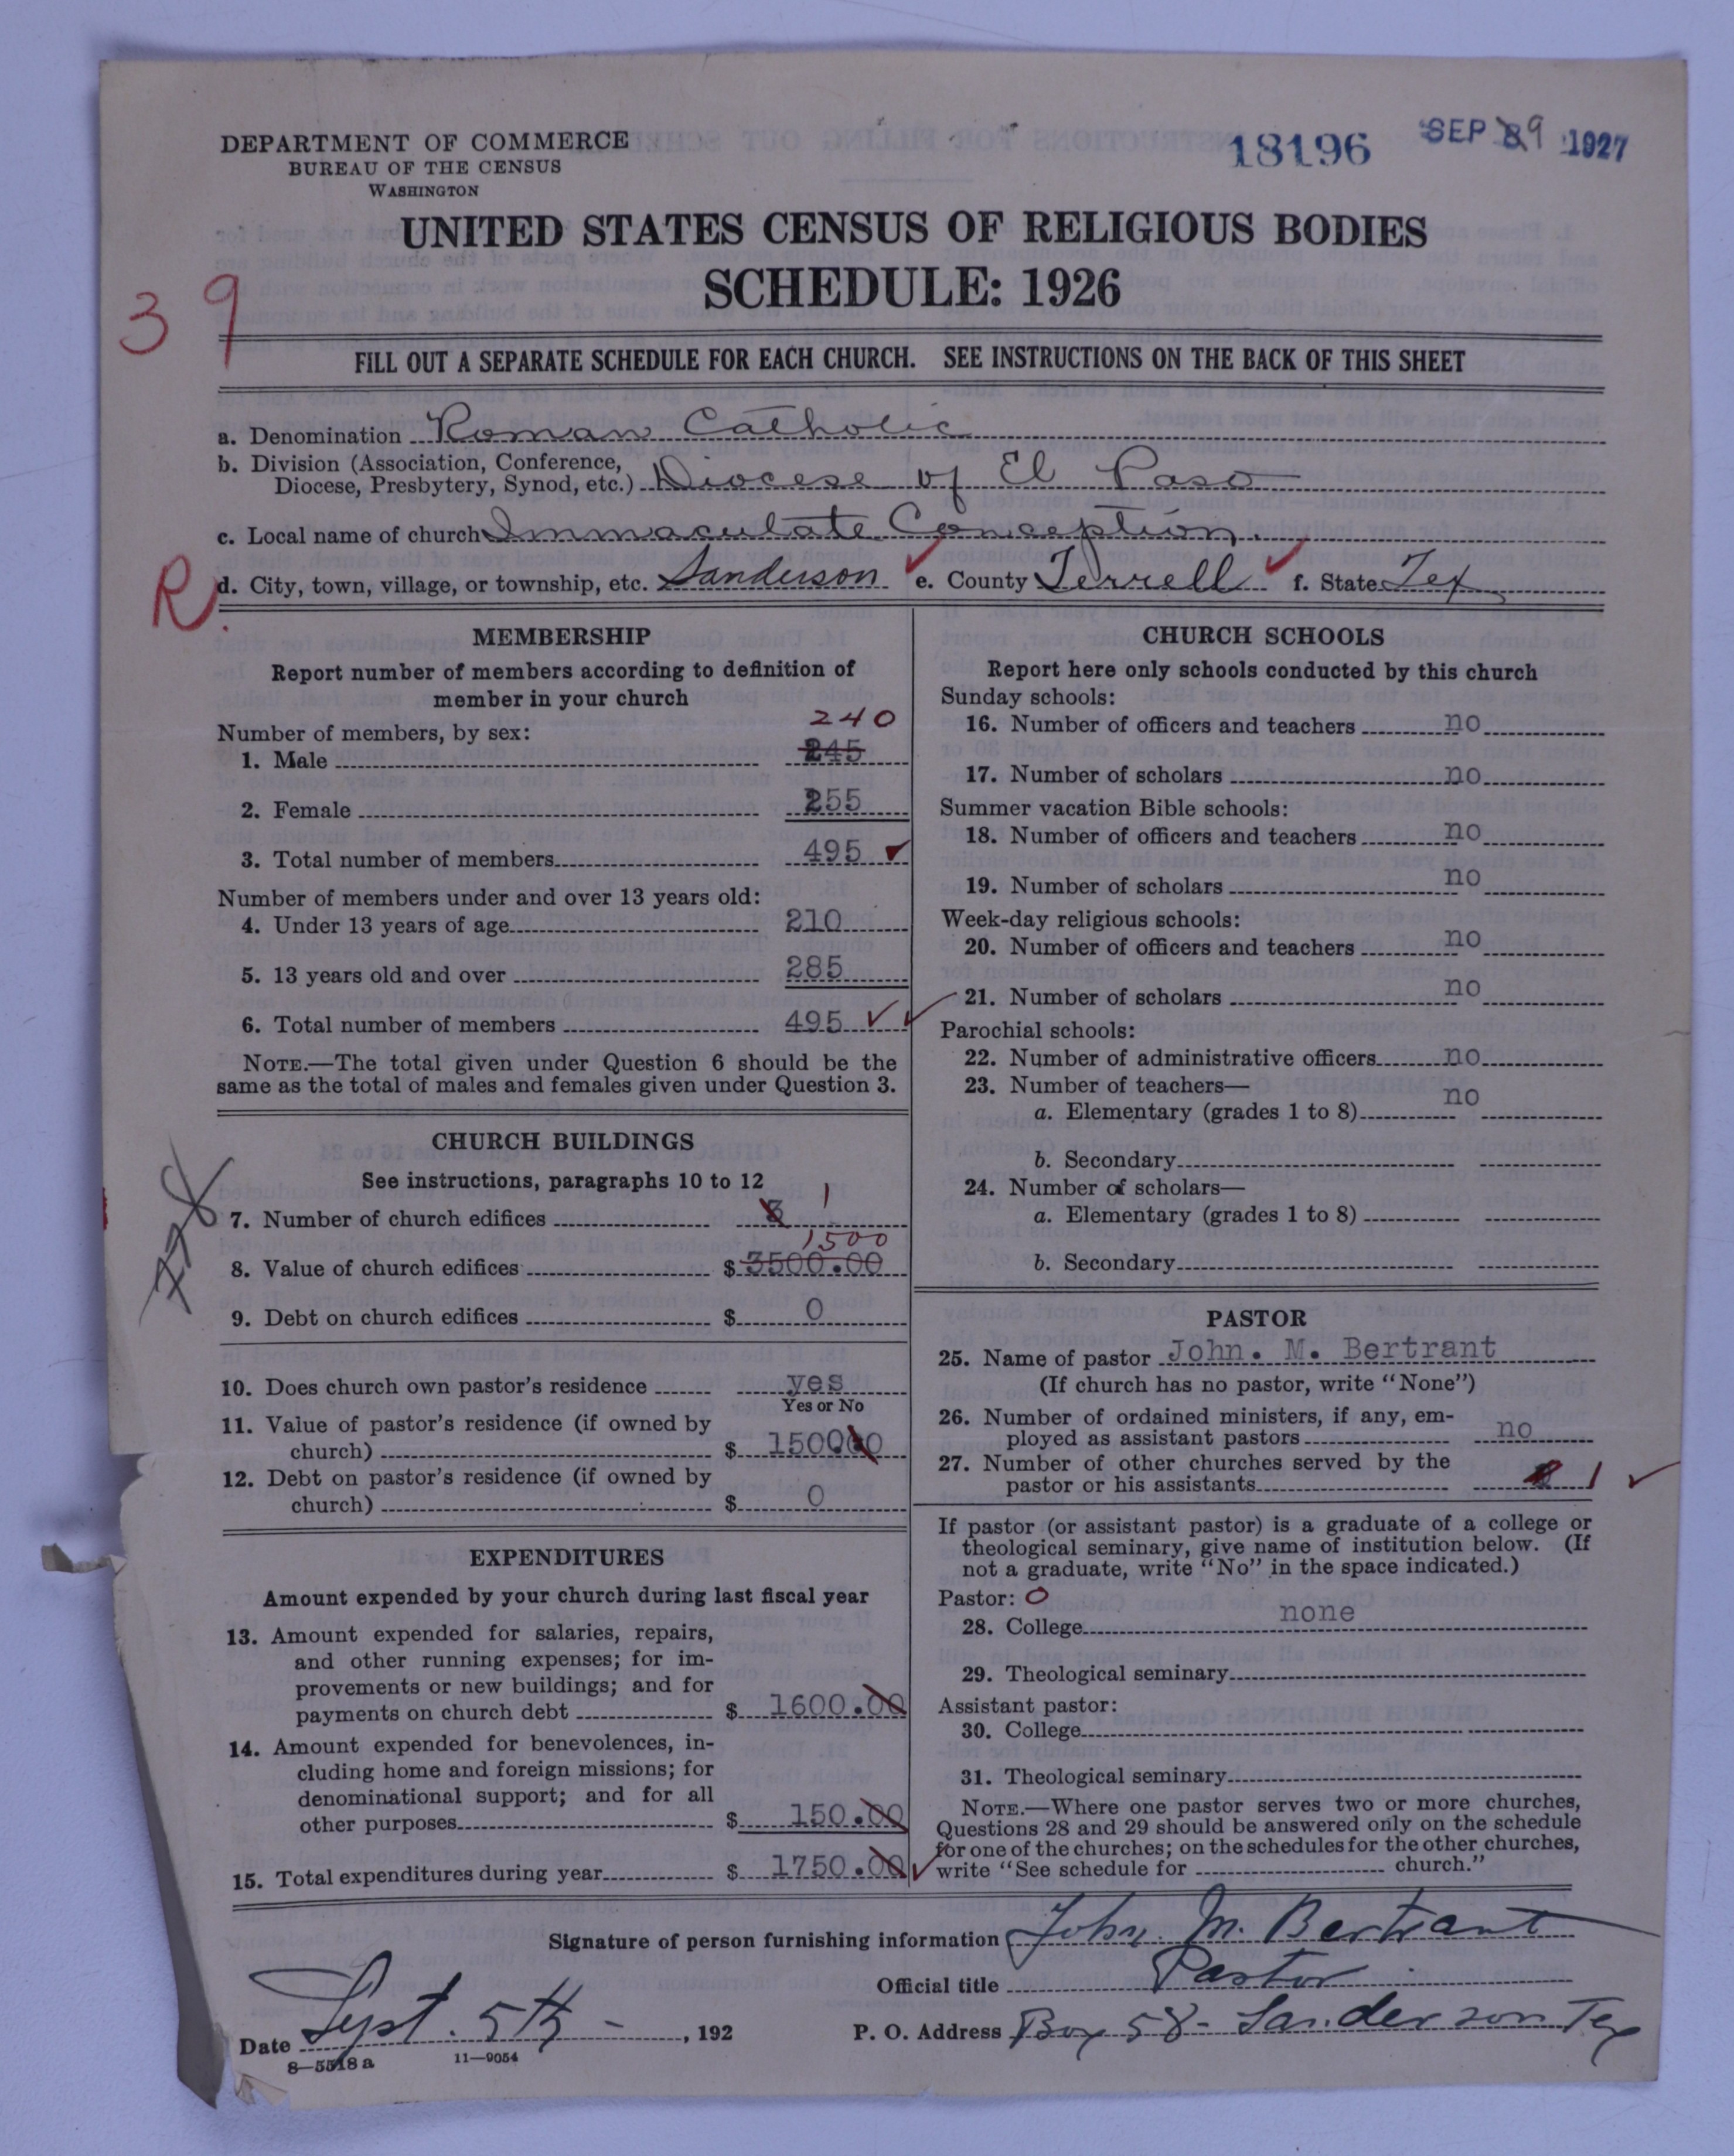 DEPARTMENT OF COMMERCE
BUREAU OF THE CENSUS
WASHINGTON
18196
SEP 8 9 1927
UNITED STATES CENSUS OF RELIGIOUS BODIES
SCHEDULE: 1926
39
FILL OUT A SEPARATE SCHEDULE FOR EACH CHURCH. SEE INSTRUCTIONS ON THE BACK OF THIS SHEET
a. Denomination Roman Catholic
b. Division (Association, Conference, Diocese, Presbytery, Synod, etc.) Diocese of El Paso
c. Local name of church Immaculate Conception.
R. d. City, town, village, or township, etc. Sanderson ✓ e. County Terrell ✓ f. State Tex
MEMBERSHIP
Report number of members according to definition of
member in your church
240
Number of members, by sex:
1. Male 245
2. Female 255
3. Total number of members 495 ✓
Number of members under and over 13 years old:
4. Under 13 years of age 210
5. 13 years old and over 285
6. Total number of members 495 ✓ ✓
NOTE.—The total given under Question 6 should be the
same as the total of males and females given under Question 3.
CHURCH BUILDINGS
See instructions, paragraphs 10 to 12
7. Number of church edifices 3 1
1500
8. Value of church edifices $ 3500.00
9. Debt on church edifices $ 0
10. Does church own pastor's residence yes
Yes or No
11. Value of pastor's residence (if owned by
church) $ 150000
12. Debt on pastor's residence (if owned by
church) $ 0
EXPENDITURES
Amount expended by your church during last fiscal year
13. Amount expended for salaries, repairs,
and other running expenses; for im-
provements or new buildings; and for
payments on church debt $ 1600.00
14. Amount expended for benevolences, in-
cluding home and foreign missions; for
denominational support; and for all
other purposes $ 150.00
15. Total expenditures during year $ 1750.00 ✓
CHURCH SCHOOLS
Report here only schools conducted by this church
Sunday schools:
16. Number of officers and teachers no
17. Number of scholars no
Summer vacation Bible schools:
18. Number of officers and teachers no
19. Number of scholars no
Week-day religious schools:
20. Number of officers and teachers no
21. Number of scholars no
Parochial schools:
22. Number of administrative officers no
23. Number of teachers—
a. Elementary (grades 1 to 8) no
b. Secondary
24. Number of scholars—
a. Elementary (grades 1 to 8)
b. Secondary
PASTOR
25. Name of pastor John. M. Bertrant
(If church has no pastor, write "None")
26. Number of ordained ministers, if any, em-
ployed as assistant pastors no
27. Number of other churches served by the
pastor or his assistants 1 ✓
If pastor (or assistant pastor) is a graduate of a college or
theological seminary, give name of institution below. (If
not a graduate, write "No" in the space indicated.)
Pastor: 0
28. College none
29. Theological seminary
Assistant pastor:
30. College
31. Theological seminary
NOTE.—Where one pastor serves two or more churches,
Questions 28 and 29 should be answered only on the schedule
for one of the churches; on the schedules for the other churches,
write "See schedule for church."
Signature of person furnishing information John. M. Bertrant
Official title Pastor
Date Sept. 5th - , 192
P. O. Address Box 58- Sanderson Tex
8—5518 a 11—9054